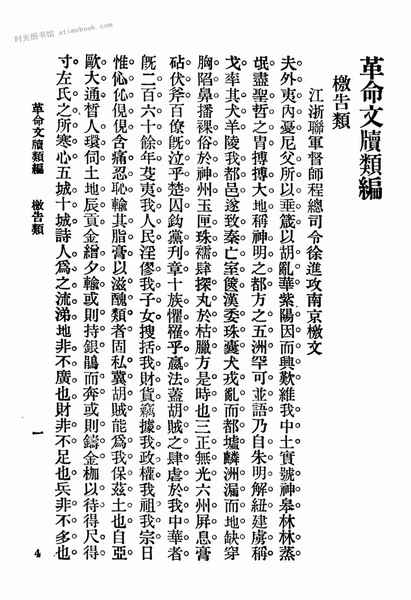 时光图书馆 atimebook.com
革命文牘類編
檄告類
江浙聯軍督師程總司令徐進攻南京檄文
夫外夷內憂尼父所以垂箴以胡亂華紫陽因而興歎維我中土實號神皋林林蒸
氓盡聖哲之冑摶摶大地稱神明之都方之五洲罕可並語乃自朱明解紐建虜稱
戈率其犬羊陵我都邑遂致秦亡室篋漢委珠囊犬戎亂而都墟麟洲漏而地缺穿
胸陷鼻播祼俗於神州玉匣珠襦肆探丸於枯臘方是時也三正無光六州屏息膏
砧伏斧百僚旣泣乎楚囚鈎黨刋章十族懼權乎嬴法蓋胡賊之肆虐於我中華者
旣二百六十餘年芟夷我人民淫僇我子女搜括我財貨竊據我政權我祖我宗日
惟伈伈俔俔含痛忍恥輸其脂膏以滋醜類者固私冀胡賊能爲我保茲土也自亞
歐大通皙人環伺土地辰貢金繒夕輸或則持銀鵑而奔或則鑄金枷以待得尺得
寸左氏之所寒心五城十城詩人爲之流涕地非不廣也財非不足也兵非不多也
革命文牘類編　檄告類
一
4